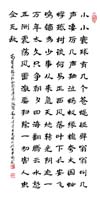 小小寰球有几个苍蝇碰壁嗡嗡叫几
声凄厉几声抽泣蚂蚁缘槐夸大国蚍
蜉撼树谈何易正西风落叶下长安飞
鸣镝多少事从来急天地转光阴迫一
万年太久只争朝夕四海翻腾云水怒
五洲震荡风雷激要扫除一切害人虫
全无敌